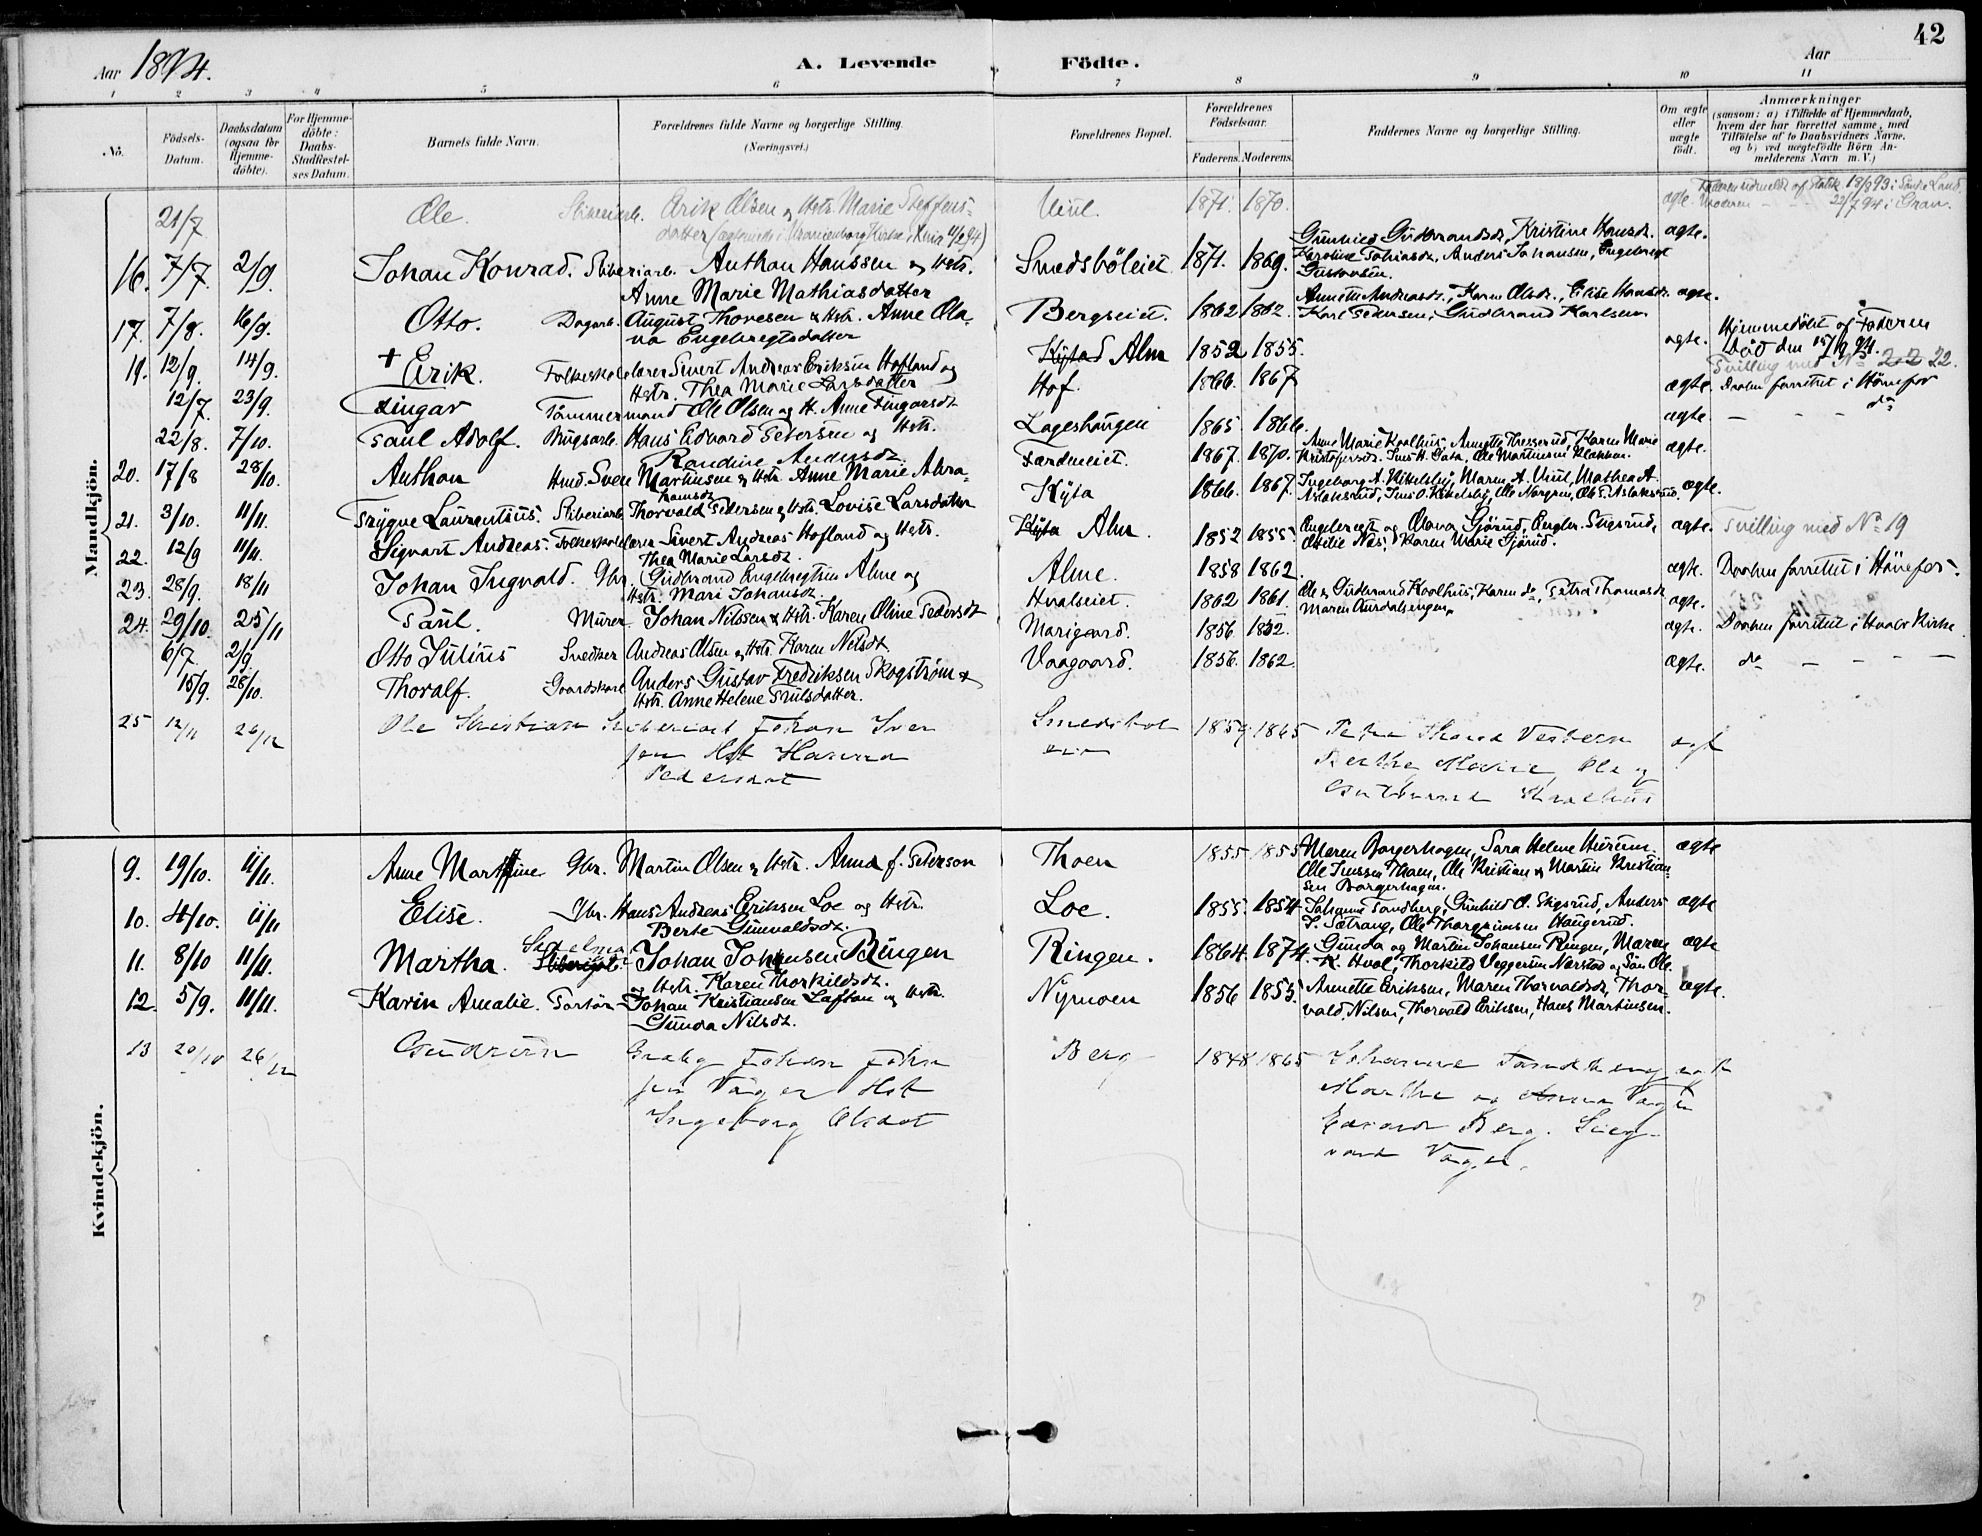 42
Aar 1894. A. Levende Födte. Aar
1 2 3 4 5 6 7 8 9 10 11
Nō. Födsels-Datum. Daabsdatum (ogsaa for Hjemme-döbte). For Hjemme-döbte: Daabs-Stadfæstel-ses Datum. Barnets fulde Navn. Forældrenes fulde Navne og borgerlige Stilling. (Næringsvei.) Forældrenes Bopæl. Forældrenes Födselsaar. Faderens. Moderens. Faddernes Navne og borgerlige Stilling. Om ægte eller uægte födt. Anmærkninger (saasom: a) i Tilfælde af Hjemmedaab, hvem der har forrettet samme, med Tilföielse af to Daabsvidners Navne, og b) ved uægtefödte Börn An-melderens Navn m. V.)
Mandkjön.
21/7 Ole. Sliberiarb. Erik Olsen og Hstr. Marie Steffens-
datter 1871. 1870. ægte. Faderen udmeldt af Statsk. 18/8 93 i Søndre Land
Moderen — — 22/7 94 i Gran.
16. 7/7. 2/9. Johan Konrad. Sliberiarb. Anthon Hanssen og Hstr.
Anne Marie Mathiasdatter Smedsböleiet 1871. 1869. Gunhild Gudbrandsdt, Kristine Hansdt.
Karoline Tobiasdt, Anders Johansen, Engebregt
Gustavsen. ægte.
17. 7/8. 16/9. Otto. Dagarb. August Thoresen & Hstr. Anne Ola-
va Engebregtsdatter Bergseiet. 1862 1862. Annette Andreasdt., Karen Olsdt., Elise Hansdt.
Karl Pedersen, Gudbrand Karlsen. ægte.
19. 12/9. 14/9. + Erik. Folkeskolelærer Sivert Andreas Eriksen Hofland og
Hstr. Thea Marie Larsdatter Kjstad Alm 1852 1855. ægte. Hjemmedöbt af Faderen
Död den 15/9 94.
Tvilling med No 22 22.
12/7. 23/9. Fingar Tömmermand Ole Olsen og H. Anne Fingarsdt Hof. 1866. 1867 ægte. Daaben forrettet i Hönefos
22/8. 7/10. Paul Adolf. Brugsarb. Hans Edvard Petersen og Hstr.
Randine Andersdt. Lageshaugen 1865. 1866. ægte — — — do
20. 17/8 28/10. Anthon Hmd. Sven Martinsen og Hstr. Anne Marie Abra-
hamsdt Færdeneiet. 1867. 1870. Anne Marie Koolhus, Karen Marie
Kristofersdt. ægte.
21. 3/10. 11/11. Trygve Laurentius. Sliberiarb. Thorvald Pedersen og Hstr. Lovise Larsdatter Kjsta 1866. 1867. Ingeborg A. Maren A. Viul, Mathea A.
Aslaksrud, Ole Norgren, Ole P. Aslaksrud. ægte.
22. 12/9 11/11. Sigvart Andreas. Folkeskolelærer Sivert Andreas Hofland og Hstr.
Thea Marie Larsdt. Kjsta Alm. 1852 1855. Engebregt og Olava Gjörud, Engebr. Stigsrud,
Ottilie Næs, Karen Marie Gjörud. ægte. Tvilling med No 19
23. 28/9. 18/11 Johan Ingvald. Gbr. Gudbrand Engebregtsen Alme og
Hstr. Mari Johansdt. Alme. 1858 1862. ægte. Daaben forrettet i Hönefos.
24. 29/10. 25/11 Paul. Murer Johan Nilssen & Hstr. Karen Oline Pedersdt Hvalseiet. 1862 1861. Ole og Gudbrand Koolhus, Karen do, Petra Thomasdt
Maren Aurdalsengen. ægte.
6/7. 2/9. Otto Julius Snedker Andreas Olsen og Hstr. Karen Nilsdt Morigaard. 1856. 1852. ægte. Daaben forrettet i Hvals Kirke
15/9. 28/10. Thoralf. Gaardskarl Anders Gustav Fredriksen Skogström &
Hstr. Anne Helene Paulsdatter. Vaagaard. 1856. 1862. ægte. do — — — —
25 12/11 26/12 Ole Kristian Sliberiarb Johan Iver
sen Hst Hanna
Pedersdat Smedsböl
eie 1859. 1865 Petra Thora Vestern
Berthe Marie, Ole og
Gudbrand Koolhus ægt
Kvindekjön.
9. 19/10. 11/11. Anne Marthine Gbr. Martin Olsen og Hstr. Anna f. Peterson Thoen 1855 1855 Maren Borgerhagen, Sara Helene Hurum.
Ole Jenssen Thoen, Ole Kristian og Martin Kristian-
sen Borgerhagen. ægte
10. 4/10. 11/11 Elise. Gbr. Hans Andreas Eriksen Loe og Hstr.
Berte Gunvaldsdt. Loe. 1855. 1854. Johanne Sandberg, Gunhild O. Skjsrud, Anders
P. Sætrang, Ole Thorgrimsen Haugerud. ægte
11. 8/10 11/11. Martha. Sliberiarb. Johan Johansen Ringen
og Hstr. Karen Thorkildsdt. Ringen. 1864. 1874. Gunda og Martin Johansen Ringen, Maren
K. Hval, Thorkild Veggerum Nærstad og Sön Ole. ægte
12. 5/9. 11/11. Karin Amalie. Johan Kristiansen Loftan og Hstr.
Gunda Nilsdt. Nymoen 1856 1855. Annette Eriksen, Maren Thorvaldsdt, Thor-
vald Nilsen, Thorvald Eriksen, Hans Martinsen. ægte.
13 20/10 26/12 Gudrun Johan Johan
sen Vager Hst
Ingeborg Olsdat Berg 1848 1865 Johanne Sandberg
Marthe og Anna Vager
Edvard Berg. Sieg-
vard Vager. ægt